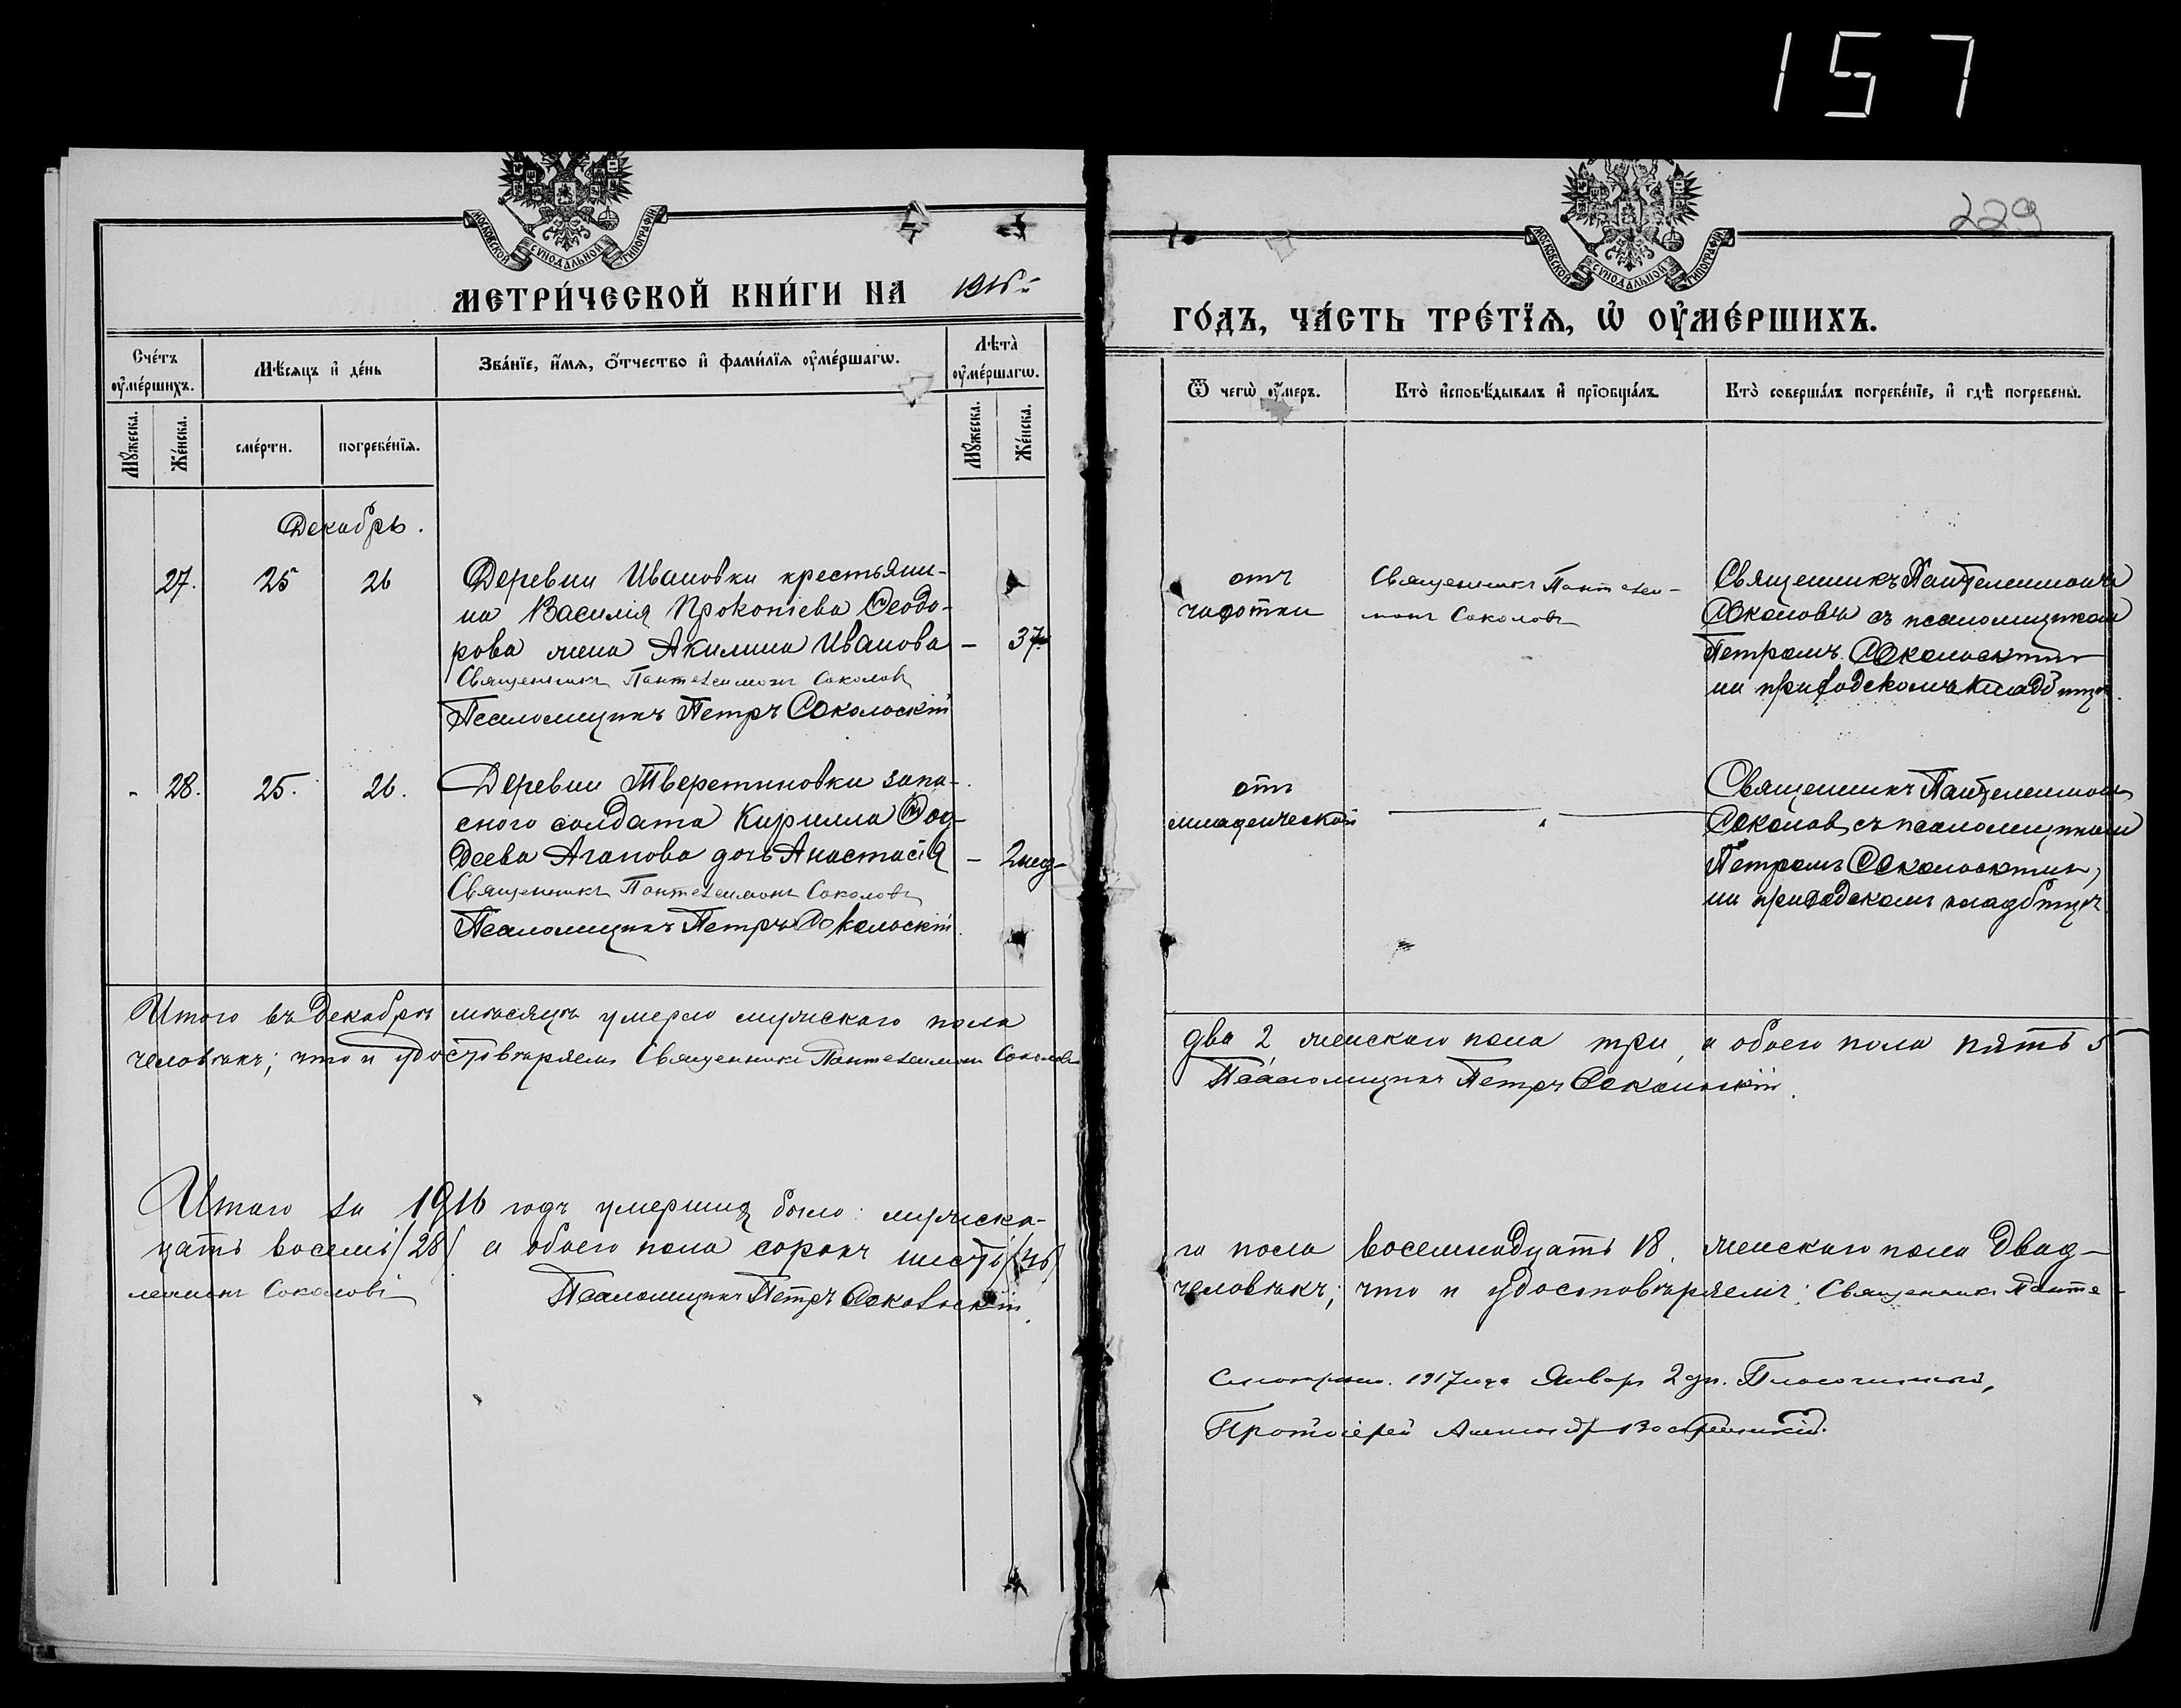 157
229
МОСКОВСКОЙ СѴНОДАЛЬНОЙ ТИПОГРАФІИ
МОСКОВСКОЙ СѴНОДАЛЬНОЙ ТИПОГРАФІИ
МЕТРИ́ЧЕСКОЙ КНИ́ГИ НА 1916
ГО́ДЪ, ЧА́СТЬ ТРЕ́ТЇѦ, Ѡ҆ ОУ҆МЕ́РШИХЪ.
Сче́тъ оу҆ме́ршихъ.
Мѣ́сяцъ и҆ де́нь
Зва́нїе, и҆́мя, ѻ҆́тчество и҆ фами́лїя оу҆ме́ршагѡ.
Лѣ́та оу҆ме́ршагѡ.
Ѿ чегѡ̀ оу҆́меръ.
Кто̀ и҆сповѣ́дывалъ и҆ прїѻбща́лъ.
Кто̀ соверша́лъ погребе́нїе, и҆ гдѣ̀ погребены̀.
Мꙋ́жеска.
Же́нска.
сме́рти.
погребе́нїя.
Мꙋ́жеска.
Же́нска.
Декабрь.
27. 25 26 Деревни Ивановки крестьяни-
на Василія Прокопіева Ѳеодо-
рова жена Акилина Иванова – 37
Священникъ Пантелеимонъ Соколовъ
Псаломщикъ Петръ Сокольскій
отъ
чахотки
Священникъ Пантелеи-
монъ Соколовъ
Священникъ Пантелеимонъ
Соколовъ съ псаломщикомъ
Петромъ Сокольскимъ
на приходскомъ кладбищѣ.
- 28. 25. 26. Деревни Тверетиновки запа-
сного солдата Кирилла Ѳад-
деева Агапова дочь Анастасія – 2 нед.
Священникъ Пантелеимонъ Соколовъ
Псаломщикъ Петръ Сокольскій.
отъ
младенческой
Священникъ Пантелеимонъ
Соколовъ съ псаломщикомъ
Петромъ Сокольскимъ,
на приходскомъ кладбищѣ
Итого въ Декабрѣ мѣсяцѣ умерло мужскаго пола
два 2, женскаго пола три, а обоего пола пять 5
человѣкъ; что и удостовѣряемъ Священникъ Пантелеимонъ Соколовъ
Псаломщикъ Петръ Сокольскій.
Итого за 1916 годъ умершихъ было: мужска-
го пола восемнадцать 18, женскаго пола двад-
цать восемь (28) а обоего пола сорокъ шесть (46)
человѣкъ; что и удостовѣряемъ: Священникъ Панте-
леимонъ Соколовъ
Псаломщикъ Петръ Сокольскій.
1917 года Январ 2 дн. Благочинный,
Протоіерей